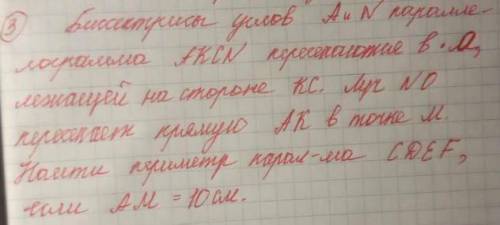 ③ Биссектрисы углов A и N паралле-
лограмма AKCN пересекаются в · O,
лежащей на стороне KC. Луч NO
пересекает прямую AK в точке M.
Найти периметр парал-ма CDEF,
если AM = 10 см.